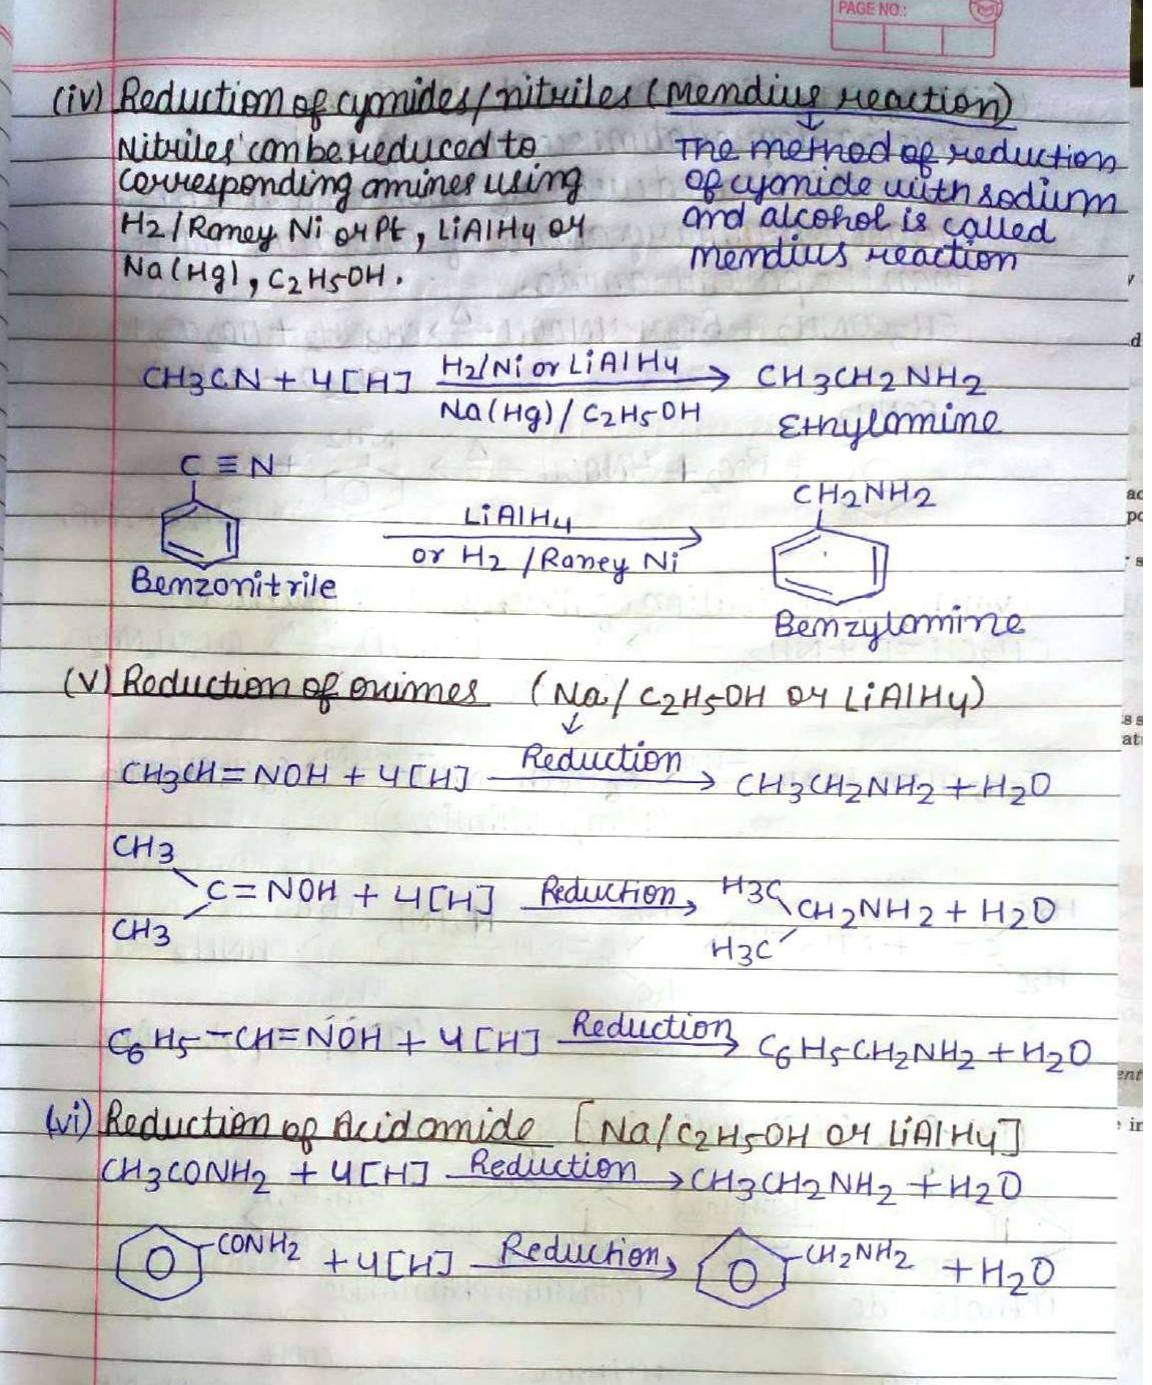 PAGE NO.:
(iv) Reduction of cyanides/nitriles (Mendius reaction)
Nitriles can be reduced to
corresponding amines using
H2/Raney Ni or Pt, LiAlH4 or
Na(Hg), C2H5OH.
↓
The method of reduction
of cyanide with sodium
and alcohol is called
mendius reaction
CH3CN + 4[H] H2/Ni or LiAlH4 → CH3CH2NH2
Na(Hg)/C2H5OH Ethylamine
C≡N
CH2NH2
LiAlH4 →
or H2/Raney Ni
Benzonitrile
Benzylamine
(v) Reduction of oximes (Na/C2H5OH or LiAlH4)
↓
CH3CH=NOH + 4[H] Reduction → CH3CH2NH2 + H2O
CH3
C=NOH + 4[H] Reduction → H3C CH2NH2 + H2O
CH3
H3C
C6H5-CH=NOH + 4[H] Reduction → C6H5CH2NH2 + H2O
(vi) Reduction of Acid amide [Na/C2H5OH or LiAlH4]
CH3CONH2 + 4[H] Reduction → CH3CH2NH2 + H2O
CONH2 + 4[H] Reduction → CH2NH2 + H2O